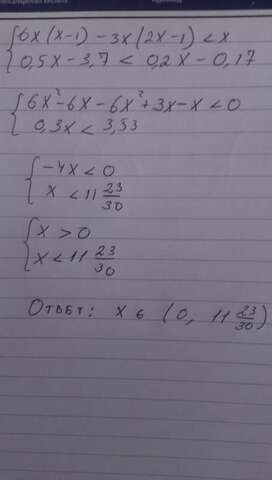 6x(x-1)-3x(2x-1)<x
0,5x-3,7<0,2x-0,17
6x²-6x-6x²+3x-x<0
0,3x<3,53
-4x<0
x<11 23/30
x>0
x<11 23/30
Ответ: x ∈ (0, 11 23/30)